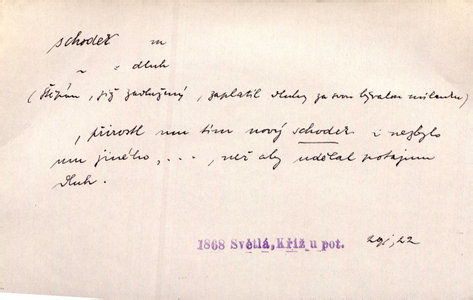 schodek m
~ = dluh
(Štěpán, již zadlužený, zaplatil dluhy za svou bývalou milenku)
, přirostl mu tím nový schodek i nezbylo
mu jiného, ..., než aby udělal potajmu
dluh.
1868 Světlá, Kříž u pot. 291,22